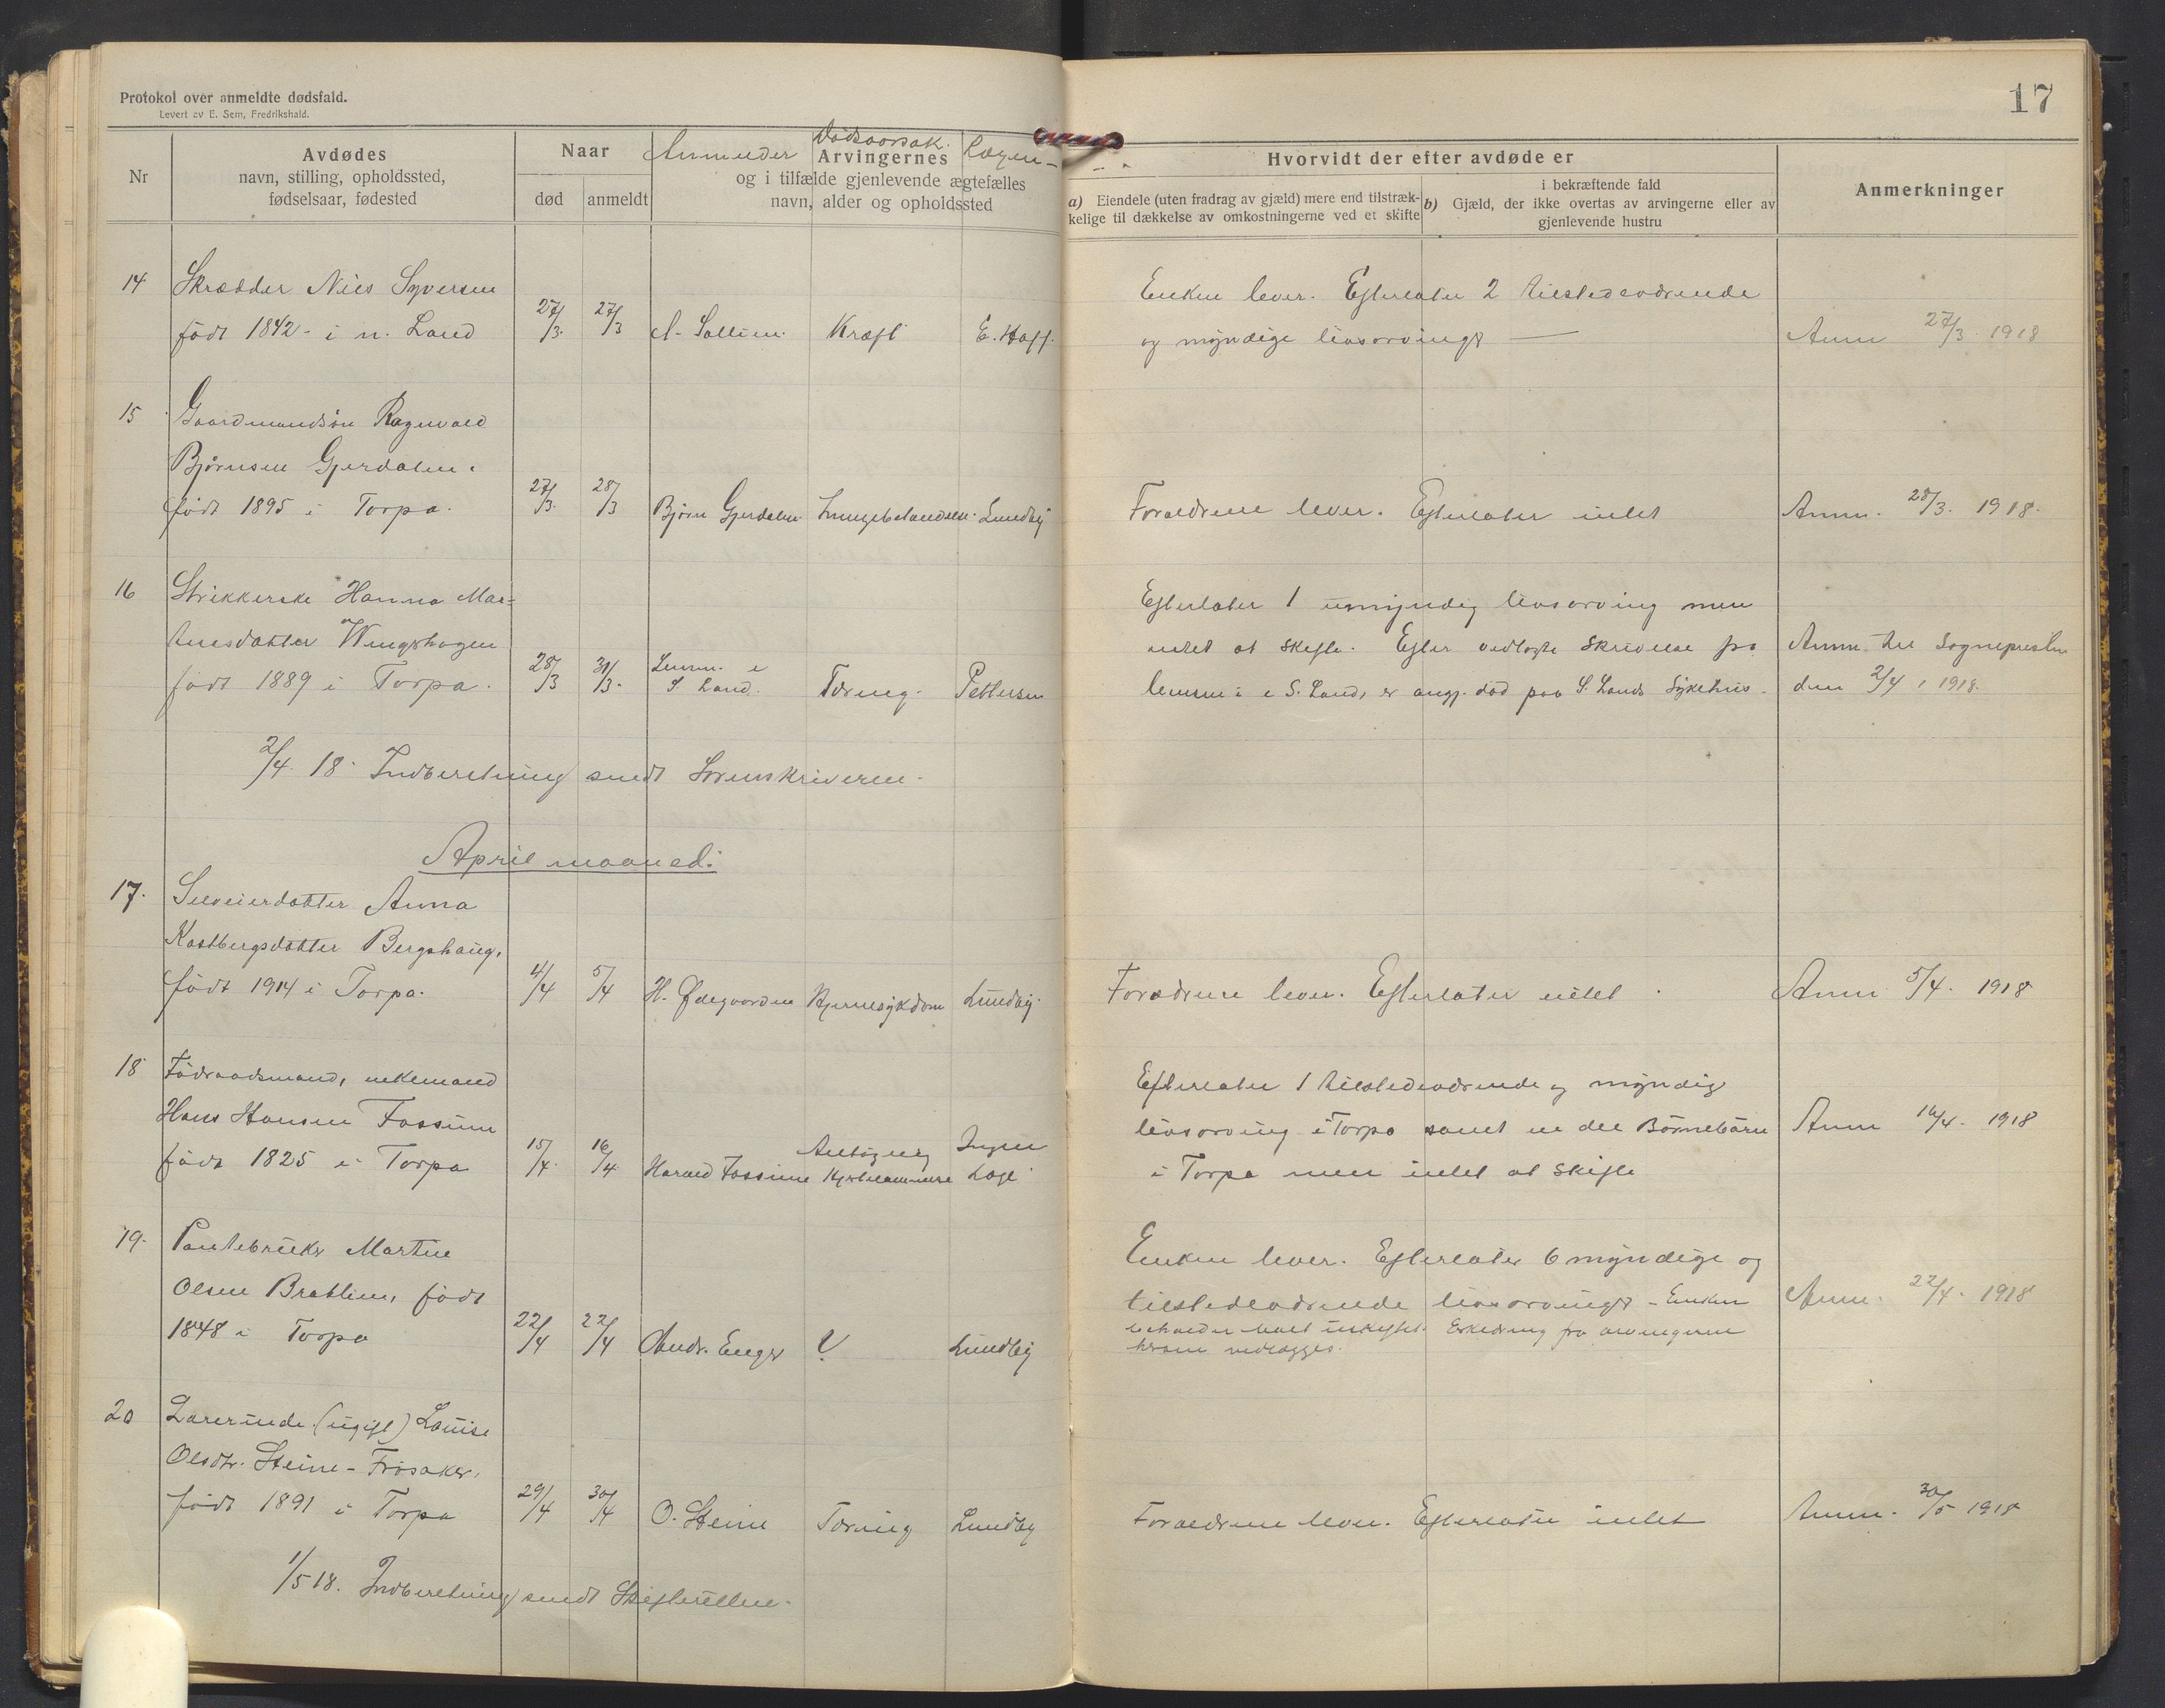 Protokol over anmeldte dødsfald.
Levert av E. Sem, Fredrikshald.
17
Nr
Avdødes
navn, stilling, opholdssted,
fødselsaar, fødested
Naar
død
anmeldt
Anmelder
Dødsaarsak.
Lægen
Arvingernes
og i tilfælde gjenlevende ægtefælles
navn, alder og opholdssted
Hvorvidt der efter avdøde er
a) Eiendele (uten fradrag av gjæld) mere end tilstræk-
kelige til dækkelse av omkostningerne ved et skifte
i bekræftende fald
b) Gjæld, der ikke overtas av arvingerne eller av
gjenlevende hustru
Anmerkninger
14 Skrædder Nils Syversen
født 1842 - i n. Land 27/3. 27/3 A. Sollien. Kræft E. Hoff.
Enken lever. Efterlater 2 tilstedeværende
og myndige livsarvinger —
Anm 27/3. 1918
15 Gaardmandsøn Ragnvald
Bjørnsen Gjerdalen.
født 1895 i Torpa. 27/3. 28/3 Bjørn Gjerdalen Lungebetændelse. Lundby
Forældrene lever. Efterlater intet
Anm. 28/3. 1918.
16 Strikkerske Hanna Mar=
tinesdatter Wingshagen
født 1889 i Torpa. 28/3 31/3. Lensm. i
S. Land. Tæring. Pettersen
Efterlater 1 umyndig livsarving men
intet at skifte. Efter vedlagte skrivelse fra
lensm. i S. Land, er angj. død paa S. Lands Sykehus.
Anm. til Sognepresten
den 2/4 1918.
2/4. 18. Indberetning sendt Sorenskriveren.
April maaned.
17. Inderstdatter Anna
Kastbergsdatter Bergshaug,
født 1914 i Torpa. 4/4 5/4 H. Ødegaarden Hjernesykdom Lundby.
Forældrene lever. Efterlater intet.
Anm 5/4. 1918
18 Føderaadsmand, enkemand
Hans Hansen Fossum
født 1825 i Torpa 15/4. 16/4 Harald Fossum
Hjertelammelse
Ingen
Læge
Efterlater 1 tilstedeværende og myndig
livsarving i Torpa samt en del Børnebørn
i Torpa men intet at skifte
Anm 16/4. 1918
19. Pantebruker Martin
Olsen Bratlien, født
1848 i Torpa 22/4 22/4 Andr. Enger ? Lundby
Enken lever. Efterlater 6 myndige og
tilstedeværende livsarvinger - Enken
beholder boet uskiftet. Erklæring fra arvingerne
herom vedlægges.
Anm. 22/4. 1918
20 Lærerinde (ugift) Louise
Olsdtr. Steine - Frøsaker,
født 1891 i Torpa 29/4 30/4 O. Steine Tæring Lundby
Forældrene lever. Efterlater intet
Anm. 30/5 1918
1/5 18. Indberetning sendt Skifteretten.